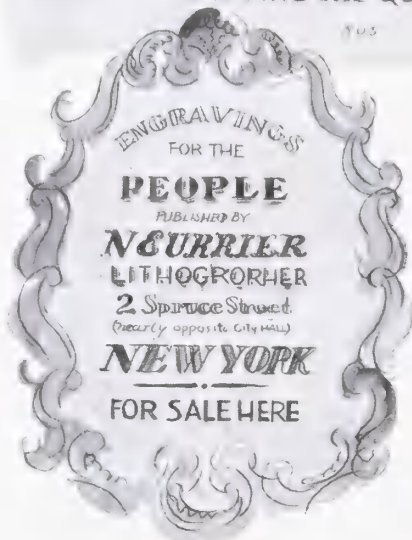 ENGRAVINGS
FOR THE
PEOPLE
PUBLISHED BY
N CURRIER
LITHOGRORHER
2 Spruce Street
(nearly opposite City HALL)
NEW YORK
FOR SALE HERE